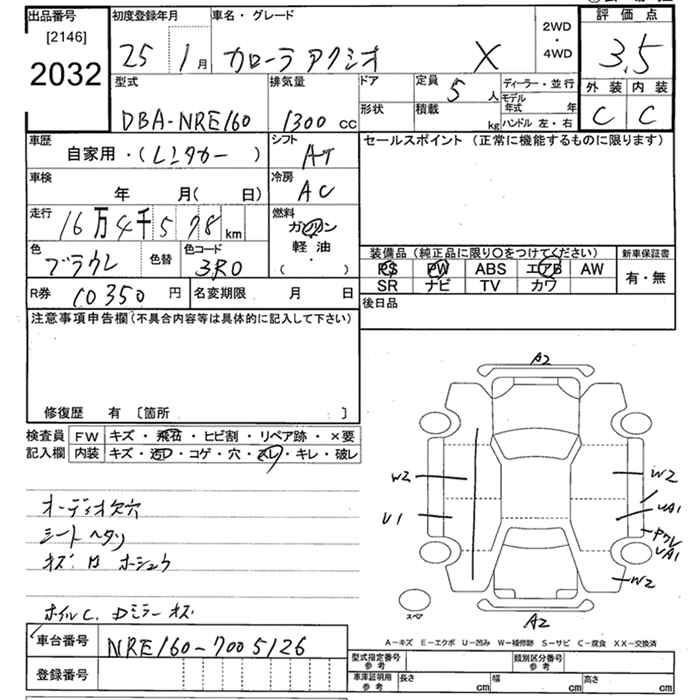 出品番号
[2146]
2032
初度登録年月
25 1月
車名・グレード
カローラ アクシオ X
2WD
・
4WD
評価点
3.5
外装 内装
C C
型式
DBA-NRE160
排気量
1300 cc
ドア
形状
定員 5 人
積載 kg
ディーラー・並行
モデル年式 年
ハンドル 左・右
車歴
自家用・(レンタカー)
シフト
AT
セールスポイント (正常に機能するものに限ります)
車検
年 月(日)
冷房
AC
走行
16万4千578 km
燃料
ガソリン
軽油
・
( )
色
ブラウン
色替
色コード
3R0
装備品 (純正品に限り○をつけてください)
新車保証書
PS PW ABS エアB AW
SR ナビ TV カワ
有・無
R券 10350 円
名変期限 月 日
後日品
注意事項申告欄(不具合内容等は具体的に記入して下さい)
修復歴 有 〔箇所 〕
検査員 FW キズ・飛石・ヒビ割・リペア跡・×要
記入欄 内装 キズ・コゲ・穴・スレ・キレ・破レ
オーディオ欠穴
シートヘタリ
ホイルC. Dミラーキズ
A2
W2
W2
U1
UA1
UA1
W2
スペア
A2
A−キズ E−エクボ U−凹み W−補修跡 S−サビ C−腐食 XX−交換済
車台番号 NRE160-7005126
登録番号
型式指定番号
参考
類別区分番号
参考
車庫証明用
参考
長さ cm 幅 cm 高さ cm